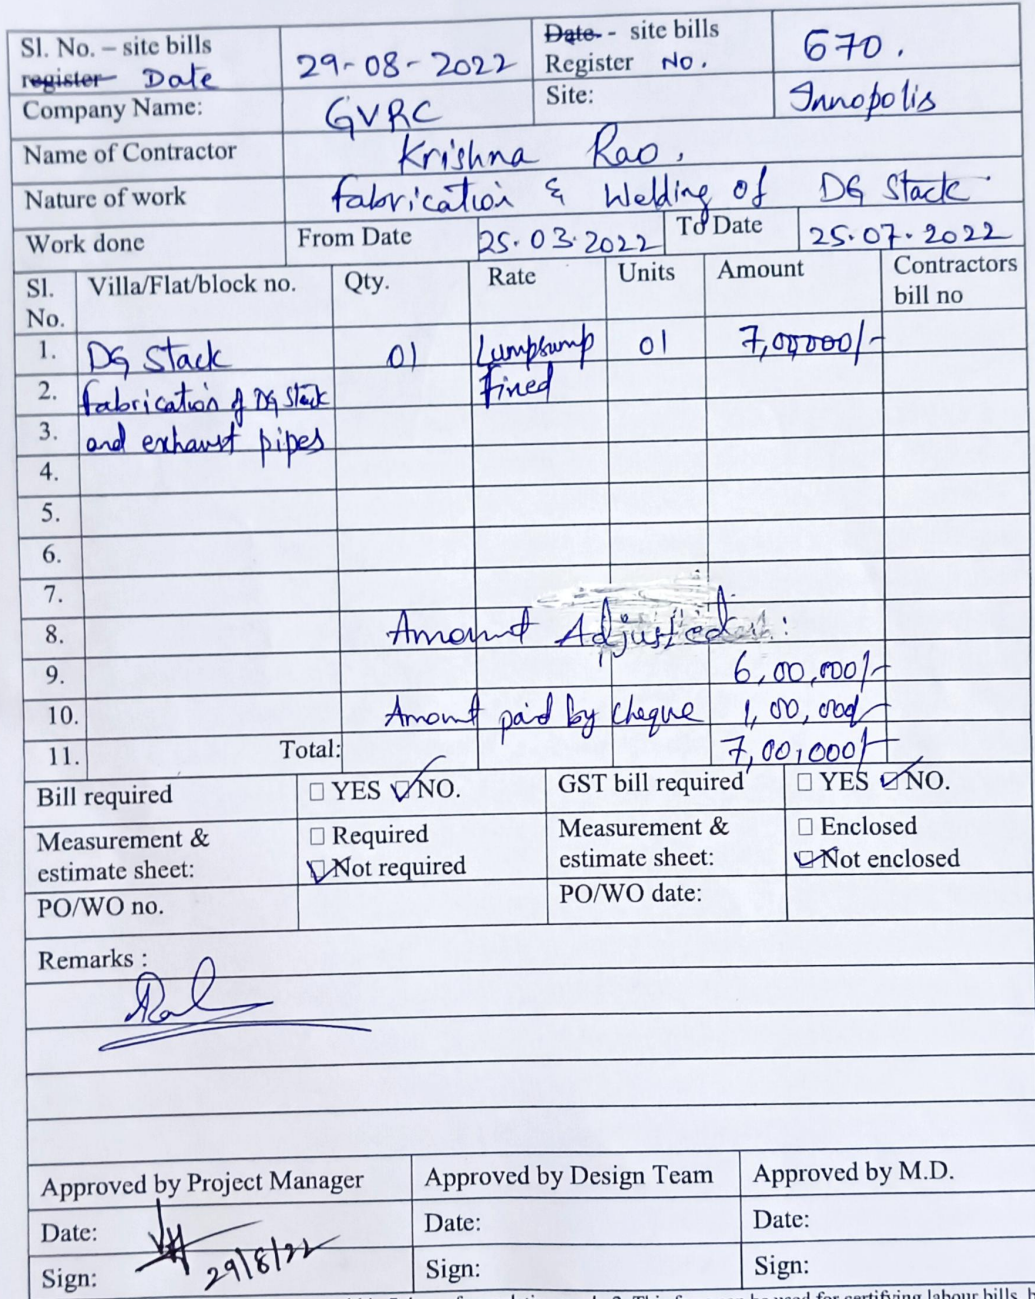 Sl. No. – site bills register Date 29-08-2022 Date - site bills Register No. 670.
Company Name: GVRC Site: Innopolis
Name of Contractor Krishna Rao,
Nature of work fabrication & Welding of DG Stack
Work done From Date 25.03.2022 To Date 25.07.2022
Sl. No. Villa/Flat/block no. Qty. Rate Units Amount Contractors bill no
1. DG Stack 01 Lumpsump 01 7,00000/-
2. fabrication of DG Stack fined
3. and exhaust pipes
4.
5.
6.
7.
8. Amount Adjusted
9. 6,00,000/-
10. Amount paid by cheque 1,00,000/-
11. Total: 7,00,000/-
Bill required □ YES ☑ NO. GST bill required □ YES ☑ NO.
Measurement & estimate sheet: □ Required ☑ Not required Measurement & estimate sheet: □ Enclosed ☑ Not enclosed
PO/WO no. PO/WO date:
Remarks :
Approved by Project Manager Approved by Design Team Approved by M.D.
Date: Date: Date:
Sign: 29/8/22 Sign: Sign: